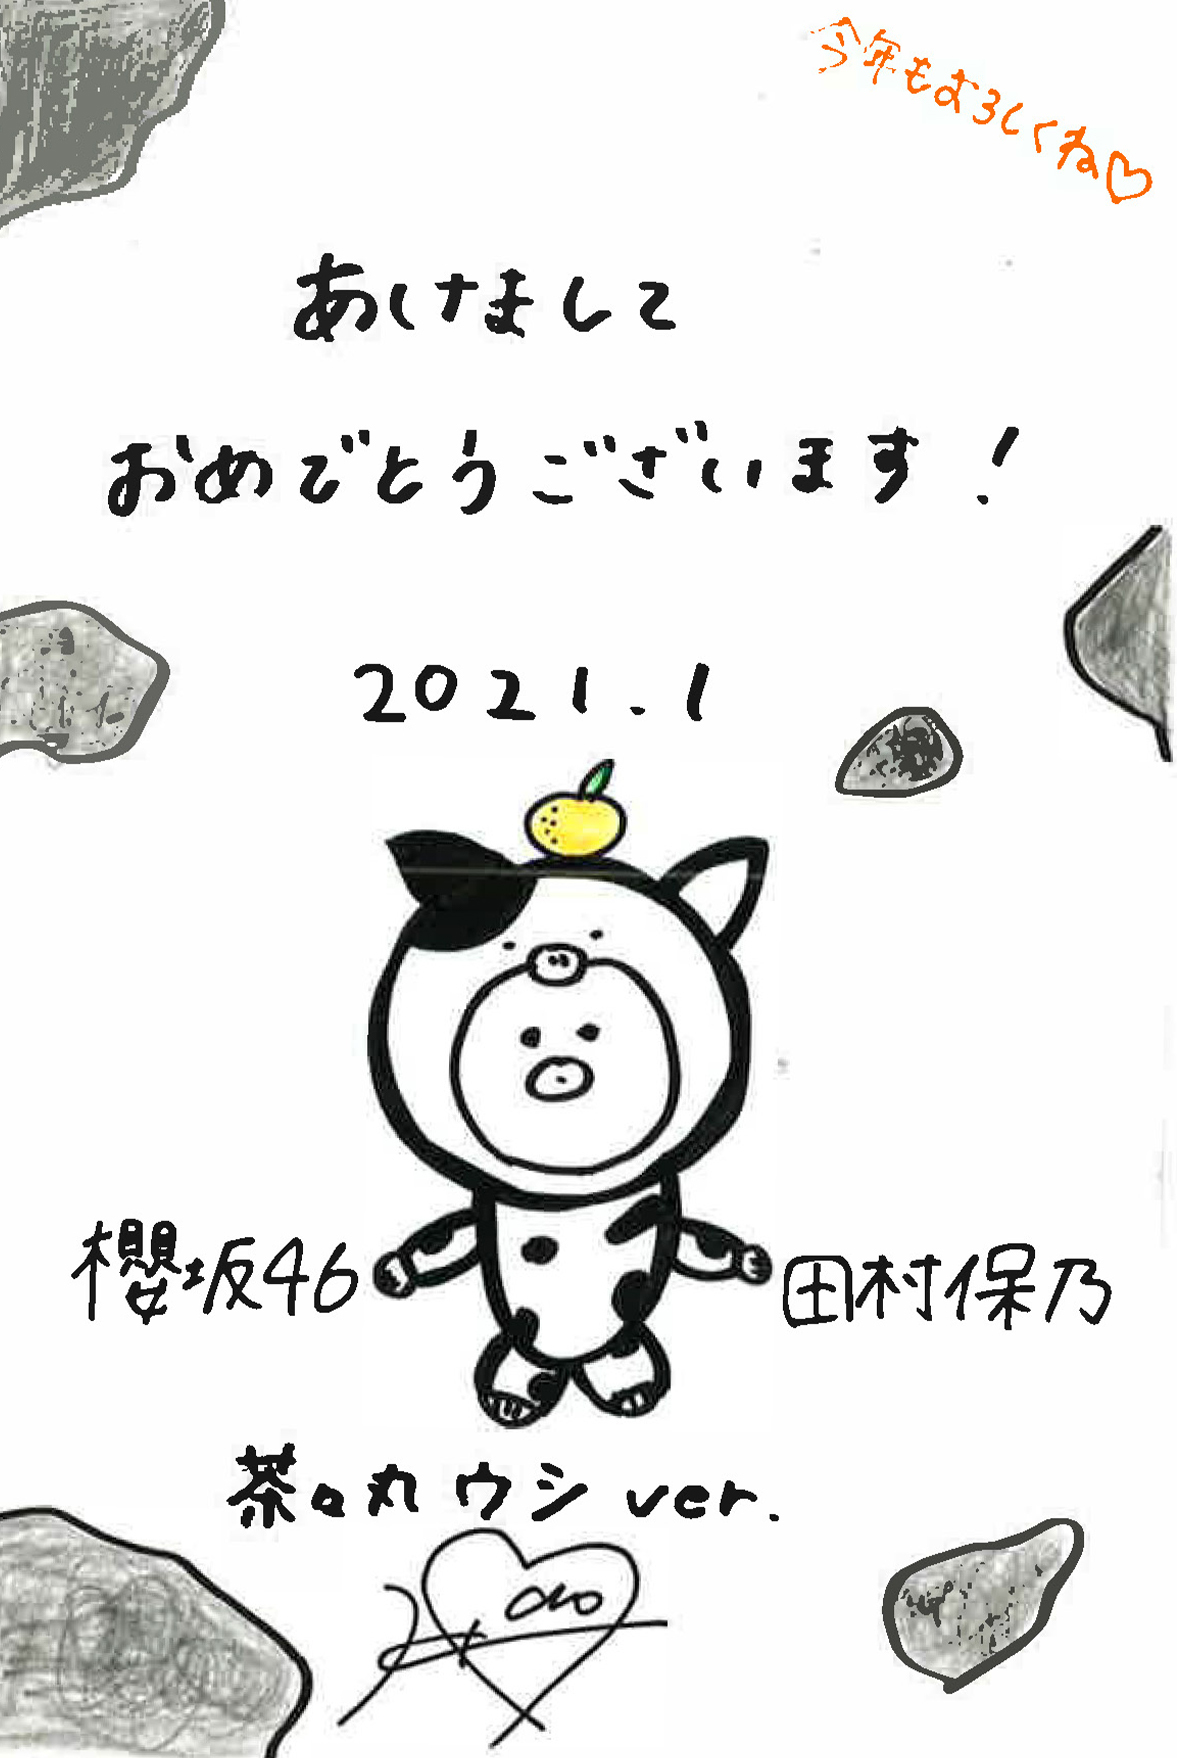 今年もよろしくね♡
あけまして
おめでとうございます！
2021.1
櫻坂46 田村保乃
茶々丸 ウシ ver.